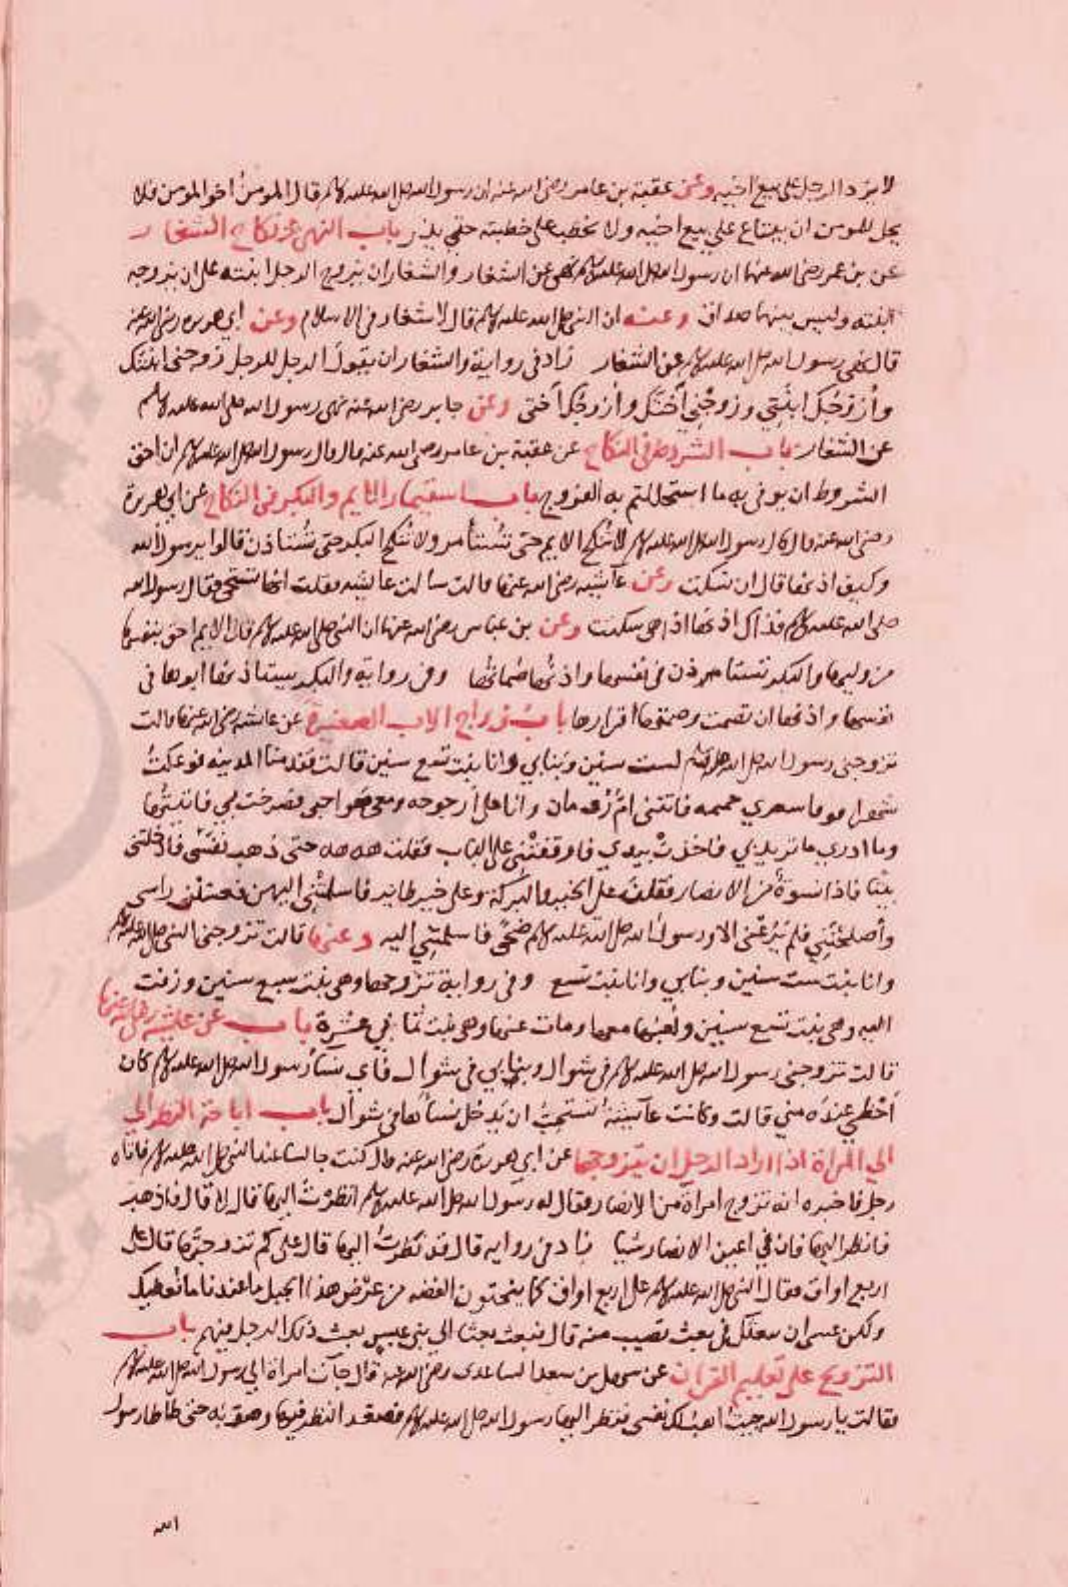 لا يزد الرجل على بيع اخيه وعن عقبة بن عامر رضى الله عنه ان رسول الله صلى الله عليه وسلم قال المومن اخو المومن فلا
يحل للمومن ان يبتاع على بيع اخيه ولا يخطب على خطبته حتى يذر باب النهى عن نكاح الشغار
عن بن عمر رضى الله عنهما ان رسول الله صلى الله عليه وسلم نهى عن الشغار والشغار ان يزوج الرجل ابنته على ان يزوجه
ابنته وليس بينهما صداق وعنه ان النبى صلى الله عليه وسلم قال لا شغار فى الاسلام وعن ابى هريره رضى الله عنه
قال نهى رسول الله صلى الله عليه وسلم عن الشغار زاد فى رواية والشغار ان يقول الرجل للرجل زوجنى ابنتك
وأزوجك ابنتي وزوجني أختك وأزوجك أختى وعن جابر رضى الله عنه نهى رسول الله صلى الله عليه وسلم
عن الشغار باب الشروط فى النكاح عن عقبة بن عامر رضى الله عنه قال قال رسول الله صلى الله عليه وسلم ان احق
الشروط ان يوفى به ما استحللتم به الفروج باب استيمار الايم والبكر فى النكاح عن ابى هريرة
رضى الله عنه قال قال رسول الله صلى الله عليه وسلم لا تنكح الايم حتى تستأمر ولا تنكح البكر حتى تستاذن قالوا يرسول الله
وكيف اذنها قال ان تسكت وعن عآيشه رضى الله عنها قالت سالت عايشه فقلت انها تستحى فقال رسول الله
صلى الله عليه وسلم فذاك اذنها اذا هى سكتت وعن بن عباس رضى الله عنهما ان النبى صلى الله عليه وسلم قال الايم احق بنفسها
من وليها والبكر تستامر فى نفسها واذنها صماتها وفى رواية والبكر يستاذنها ابوها فى
نفسها واذنها ان تصمت وصمتها اقرارها باب زواج الاب الصغيرة عن عايشه رضى الله عنها قالت
تزوجنى رسول الله صلى الله عليه وسلم لست سنين وبنابي وانا بنت تسع سنين قالت فقدمنا المدينه فوعكت
شهرا فوفا شعري جميمه فاتتنى ام رومان وانا على ارجوحه ومعى صواحبى فصرخت بي فاتيتها
وما ادري ما تريد بي فاخذت بيدي فاوقفتني على الباب فقلت هه هه حتى ذهب نفسي فادخلتنى
بيتا فاذا نسوة من الانصار فقلن على الخير والبركة وعلى خير طاير فاسلمتنى اليهن فغسلن راسى
وأصلحننى فلم يرعنى الا ورسول الله صلى الله عليه وسلم ضحى فاسلمننى اليه وعنها قالت تزوجنى النبى صلى الله عليه وسلم
وانا بنت ست سنين وبنابي وانا بنت تسع وفى رواية تزوجها وهى بنت سبع سنين وزفت
اليه وهى بنت تسع سنين ولعبها معها ومات عنها وهى بنت ثمانى عشرة باب عن عايشه رضى الله عنها
قالت تزوجنى رسول الله صلى الله عليه وسلم فى شوال وبنابي فى شوال فأي نسأ رسول الله صلى الله عليه وسلم كان
أحظى عنده مني قالت وكانت عآيشة تستحب ان يدخل نسأها فى شوال باب اباحة النظر الي
الي المراة اذا اراد الرجل ان يتزوجها عن ابى هريرة رضى الله عنه قال كنت جالسا عند النبى صلى الله عليه وسلم فاتاه
رجل فاخبره انه تزوج امراة من الانصار فقال له رسول الله صلى الله عليه وسلم انظرت اليها قال لا قال فاذهب
فانظر اليها فان في اعين الانصار شيا زاد فى روايه قال قد نظرت اليها قال على كم تزوجتها قال على
اربع اواق فقال النبى صلى الله عليه وسلم على اربع اواق كانما ينحتون الفضه من عرض هذا الجبل ما عندنا ما نعطيك
ولكن عسى ان نبعثك فى بعث تصيب منه قال فبعث بعثا الى بني عبس بعث ذلك الرجل فيهم باب
التزويج على تعليم القران عن سهل بن سعد الساعدى رضى الله عنه قال جآت امراة الي رسول الله صلى الله عليه وسلم
فقالت يا رسول الله جيت اهب لك نفسى فنظر اليها رسول الله صلى الله عليه وسلم فصعد النظر فيها وصوبه حتى طاطا رسول
الله